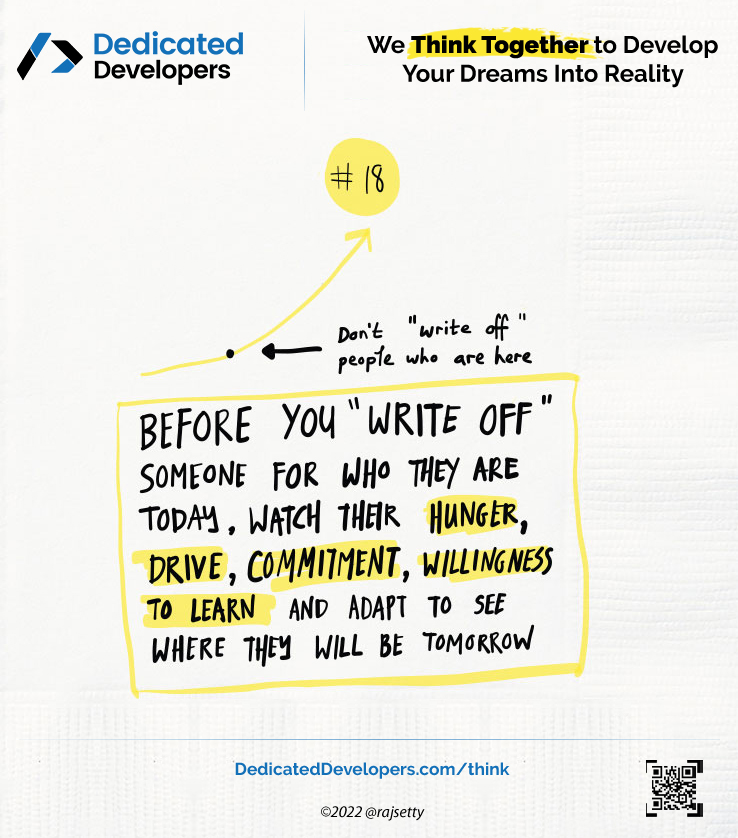 Dedicated
Developers
We Think Together to Develop
Your Dreams Into Reality
# 18
Don't "write off"
people who are here
BEFORE YOU "WRITE OFF"
SOMEONE FOR WHO THEY ARE
TODAY, WATCH THEIR HUNGER,
DRIVE, COMMITMENT, WILLINGNESS
TO LEARN AND ADAPT TO SEE
WHERE THEY WILL BE TOMORROW
DedicatedDevelopers.com/think
©2022 @rajsetty